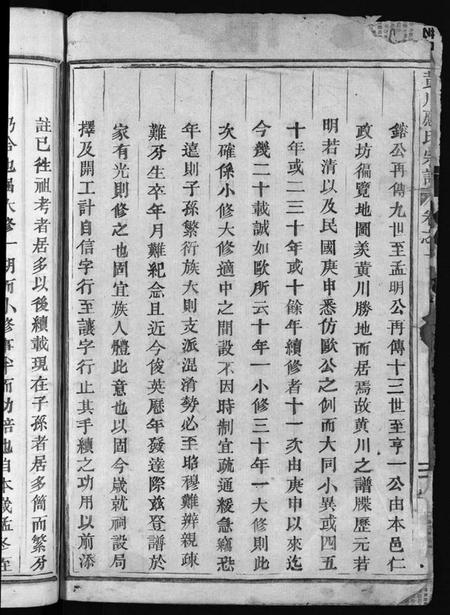 鎔公再傳九世至孟明公再傳十三世至亨一公由本邑仁
政坊徧覽地圖羨黃川勝地而居焉故黃川之譜牒歷元若
明若清以及民國庚申悉仿歐公之例而大同小異或四五
十年或二三十年或十餘年續修者十一次由庚申以來迄
今幾二十載誠如歐所云十年一小修三十年一大修則此
次確係小修大修適中之間設不因時制宜疏通緩急竊恐
年遠則子孫繁衍族大則支派混淆勢必至昭穆難辨親疎
難分生卒年月難紀念且近今後英歷年發達際茲登譜於
家有光則修之也固宜族人體此意也以固今歲就祠設局
擇及開工計自信字行至讓字行止其手續之功用以前添
註已往祖考者居多以後續載現在子孫者居多簡而繁分
乃合也虽大修一朝而小修事半而功倍也自本歲孟冬至